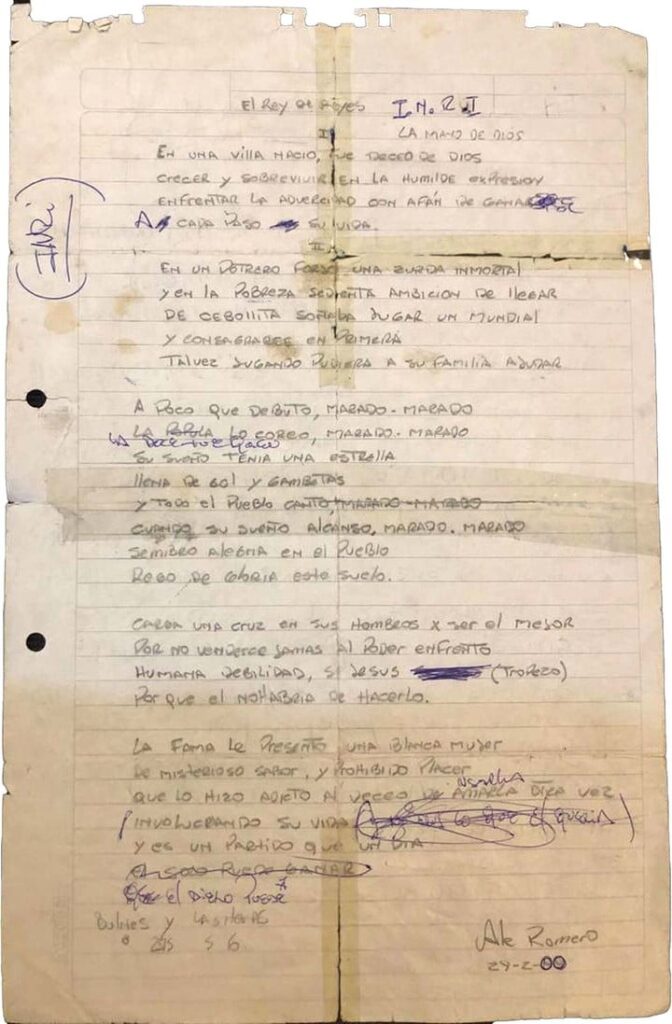 El Rey de Reyes I.N.R.I
I LA MANO DE DIOS
EN UNA VILLA NACIO, FUE DECEO DE DIOS
CRECER Y SOBREVIVIR EN LA HUMILDE EXPRESION
ENFRENTAR LA ADVERCIDAD CON AFÁN DE GANAR
A CADA PASO SU VIDA.
(INRI)
II
EN UN POTRERO FORJO UNA ZURDA INMORTAL
Y EN LA POBREZA SEDIENTA AMBICION DE LLEGAR
DE CEBOLLITA SOÑABA JUGAR UN MUNDIAL
Y CONSAGRARCE EN PRIMERA
TALVEZ JUGANDO PUDIERA A SU FAMILIA AYUDAR
A POCO QUE DEBUTO, MARADO-MARADO
LA POPULA LO COREO, MARADO-MARADO
LA DOCE FUE QUIEN
SU SUEÑO TENIA UNA ESTRELLA
LLENA DE GOL Y GAMBETAS
Y TODO EL PUEBLO CANTO, MARADO-MARADO
CUANDO SU SUEÑO ALCANSO, MARADO. MARADO
SEMBRO ALEGRIA EN EL PUEBLO
REGO DE GLORIA ESTE SUELO.
CARGA UNA CRUZ EN SUS HOMBROS X SER EL MEJOR
POR NO VENDERCE JAMAS AL PODER ENFRENTO
HUMANA DEBILIDAD, SI JESUS (TROPEZO)
POR QUE EL NO HABRIA DE HACERLO.
LA FAMA LE PRESENTO UNA BLANCA MUJER
DE MISTERIOSO SABOR, Y PROHIBIDO PLACER
QUE LO HIZO ADICTO AL DECEO DE USARLA OTRA VEZ
INVOLUCRANDO SU VIDA
Y ES UN PARTIDO QUE UN DIA
EL SOLO PUEDE GANAR
EL DIEGO
BULNES Y LAS HERAS
S 6
Ale Romero
29-2-00